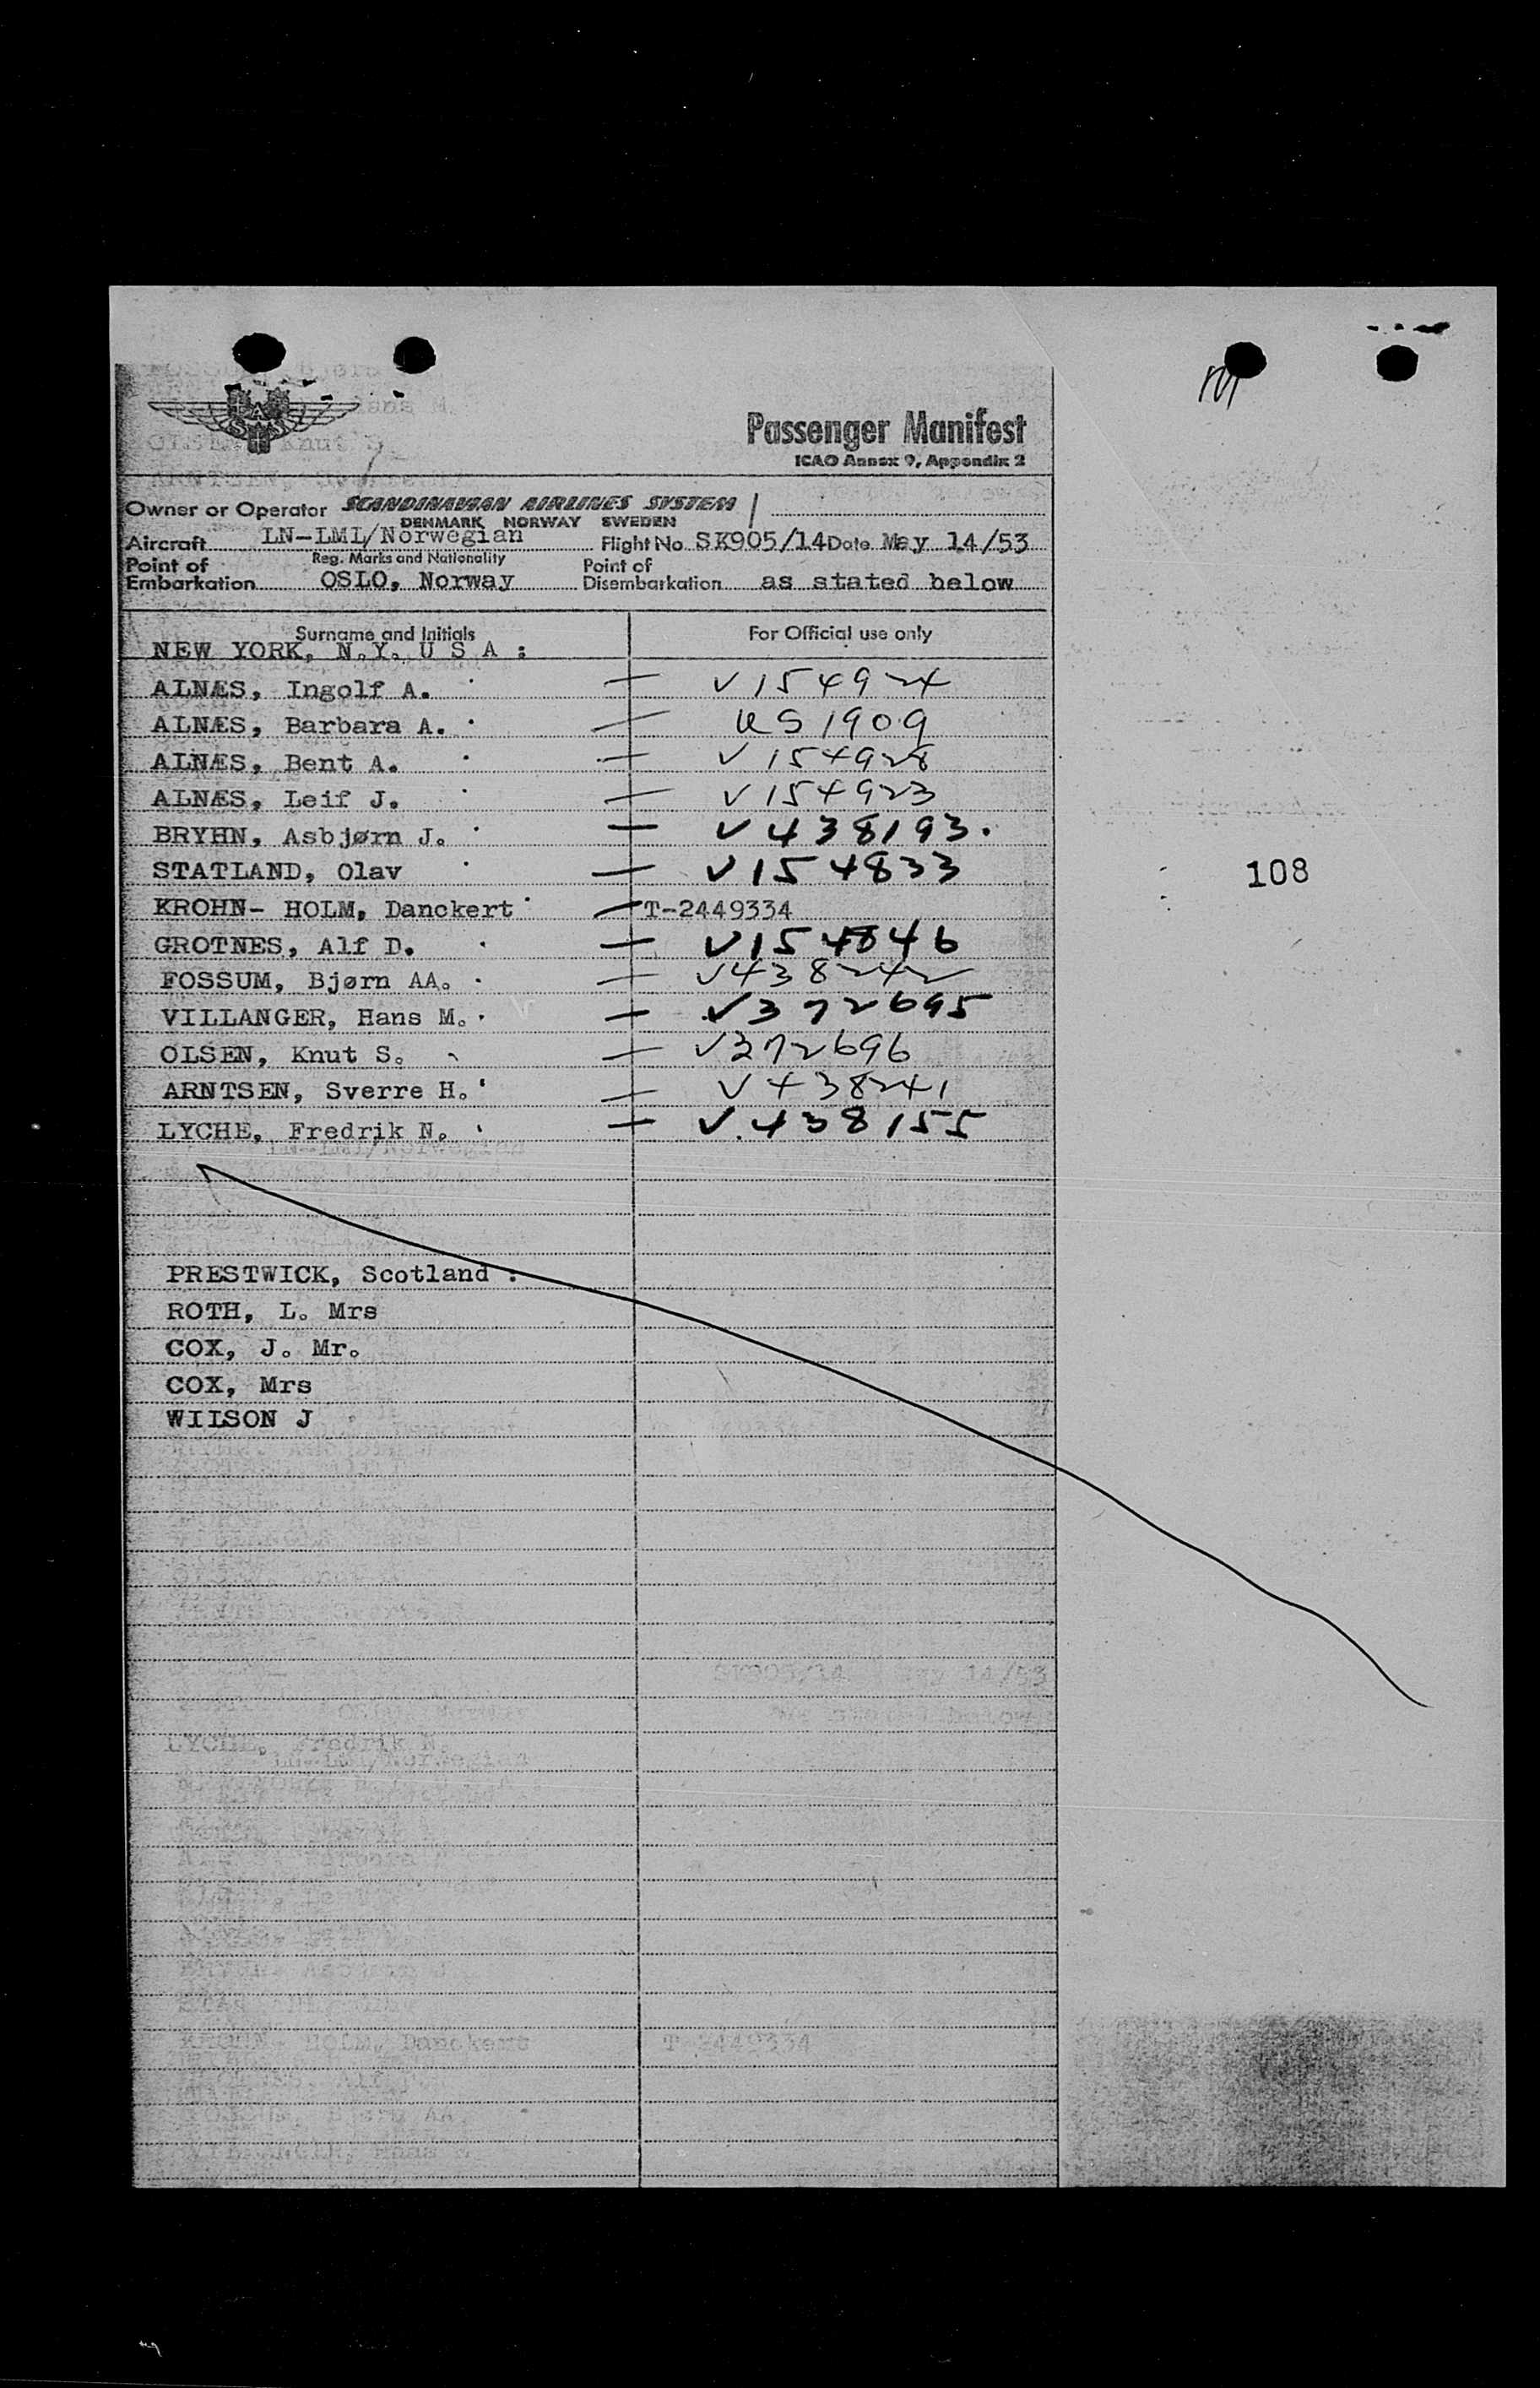 SAS
Passenger Manifest
ICAO Annex 9, Appendix 2
Owner or Operator SCANDINAVIAN AIRLINES SYSTEM
DENMARK NORWAY SWEDEN
Aircraft LN-LMI/Norwegian Flight No. SK905/14 Date May 14/53
Reg. Marks and Nationality
Point of Embarkation OSLO, Norway Point of Disembarkation as stated below
Surname and Initials For Official use only
NEW YORK, N.Y. U S A :
ALNÆS, Ingolf A. — V 154924
ALNÆS, Barbara A. — US 1909
ALNÆS, Bent A. — V 154928
ALNÆS, Leif J. — V 154923
BRYHN, Asbjørn J. — V 438193.
STATLAND, Olav — V 154833
KROHN- HOLM, Danckert — T-2449334
GROTNES, Alf D. — V154846
FOSSUM, Bjørn AA. — V438242
VILLANGER, Hans M. — V372695
OLSEN, Knut S. — V372696
ARNTSEN, Sverre H. — V438241
LYCHE, Fredrik N. — V.438155
PRESTWICK, Scotland :
ROTH, L. Mrs
COX, J. Mr.
COX, Mrs
WILSON J
108